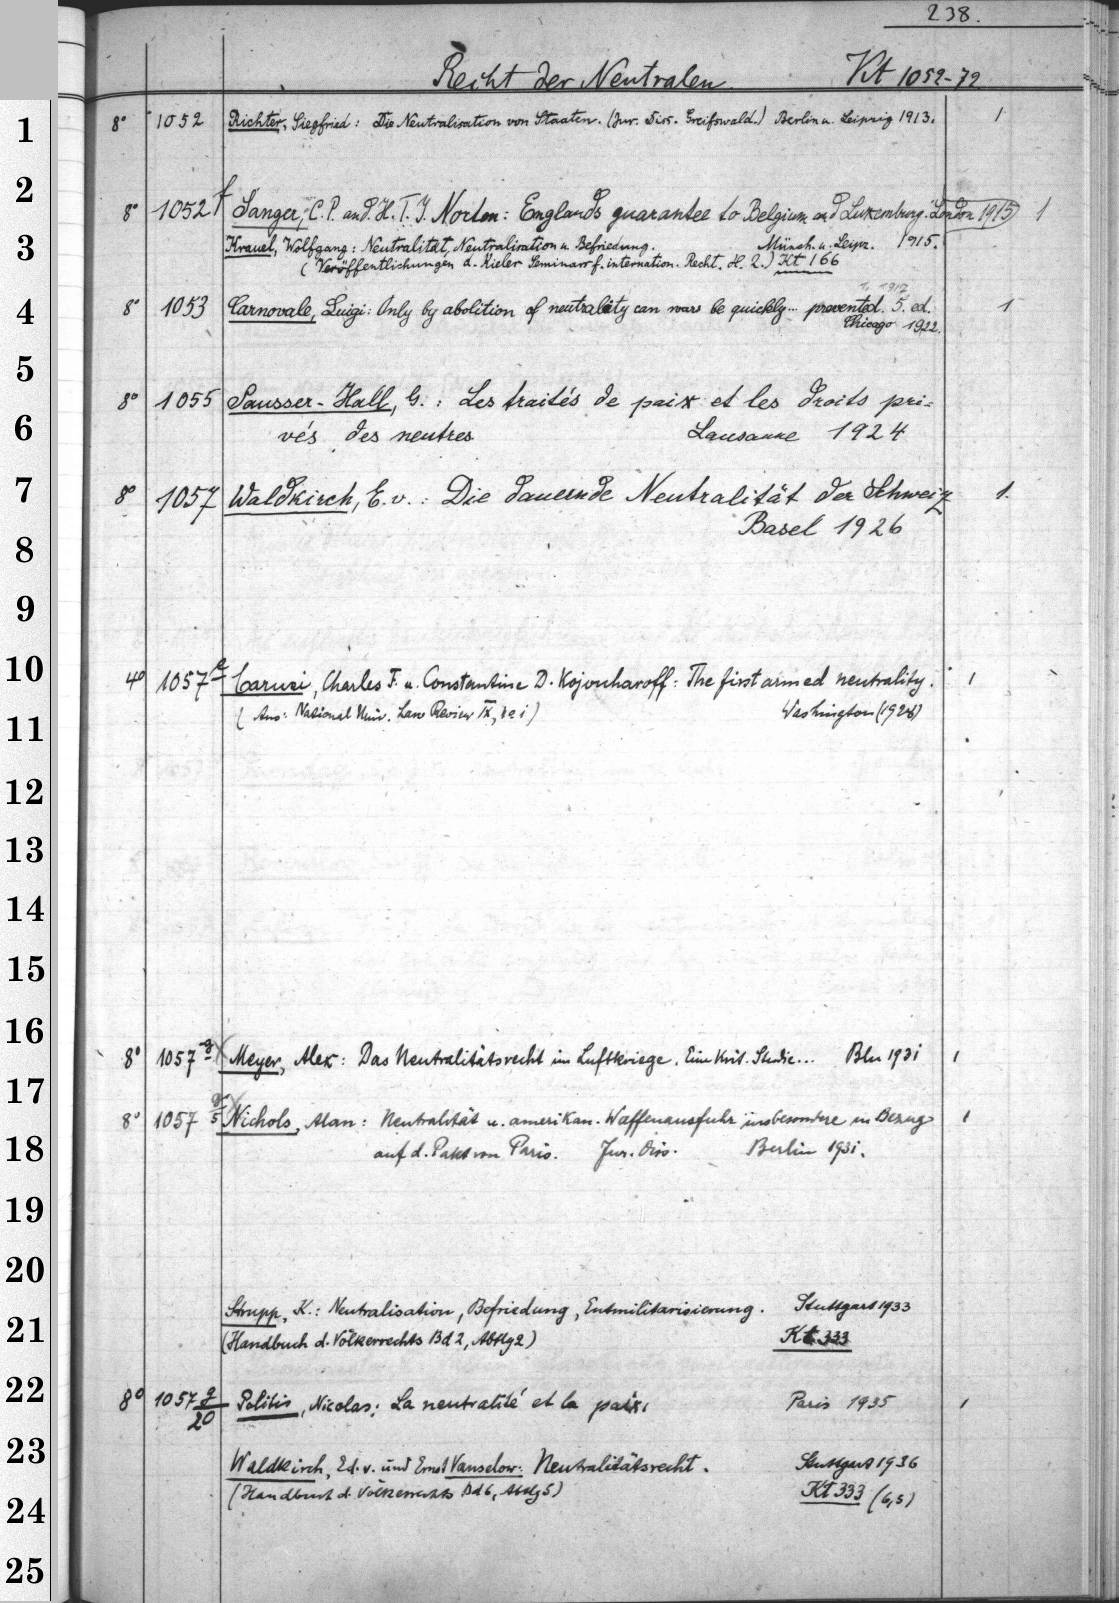 238.
Recht der Neutralen Kt 1052-72
1 8° 1052 Richter, Siegfried: Die Neutralisation von Staaten. (Jur. Diss. Greifswald.) Berlin u. Leipzig 1913. 1
2 8° 1052 f Sanger, C. P. and. H. T. J. Norton: Englands guarantee to Belgium and Luxemburg. London 1915 1
3 Krauel, Wolfgang: Neutralität, Neutralisation u. Befriedung. Münch. u. Leipz. 1915.
(Veröffentlichungen d. Kieler Seminars f. internation. Recht. H. 2.) Kt 166
1917
4 8° 1053 Carnovale, Luigi: Only by abolition of neutrality can wars be quickly... prevented. 5. ed. 1
Chicago 1922.
5 8° 1055 Sausser-Hall, G.: Les traités de paix et les droits pri-
6 vés des neutres Lausanne 1924
7 8° 1057 Waldkirch, E. v.: Die dauernde Neutralität der Schweiz 1.
8 Basel 1926
9
10 4° 1057 e Carusi, Charles F. u. Constantine D. Kojouharoff: The first armed neutrality. 1
11 (Aus: National Univ. Law Review IX, 1) Washington (1928)
12
13
14
15
16 8° 1057 g Meyer, Alex: Das Neutralitätsrecht im Luftkriege. Eine Krit. Studie... Bln 1931 1
17 8° 1057 g/5 Nichols, Alan: Neutralität u. amerikan. Waffenausfuhr insbesondere in Bezug 1
18 auf d. Pakt von Paris. Jur. Diss. Berlin 1931.
19
20
Strupp, K.: Neutralisation, Befriedung, Entmilitarisierung. Stuttgart 1933
21 (Handbuch d. Völkerrechts Bd 2, Abtlg 2) Kt 333
22 8° 1057 g/20 Politis, Nicolas: La neutralité et la paix. Paris 1935 1
23 Waldkirch, Ed. v. und Ernst Vanselow: Neutralitätsrecht. Stuttgart 1936
24 (Handbuch d. Völkerrechts Bd 6, Abtlg 5) Kt 333 (6,5)
25